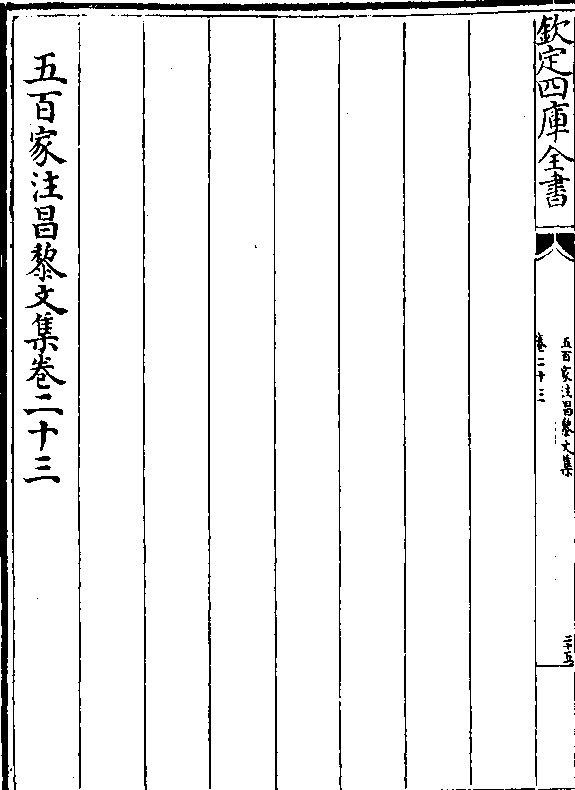 欽定四庫全書
五百家注昌黎文集
卷二十三
二十五
五百家注昌黎文集卷二十三